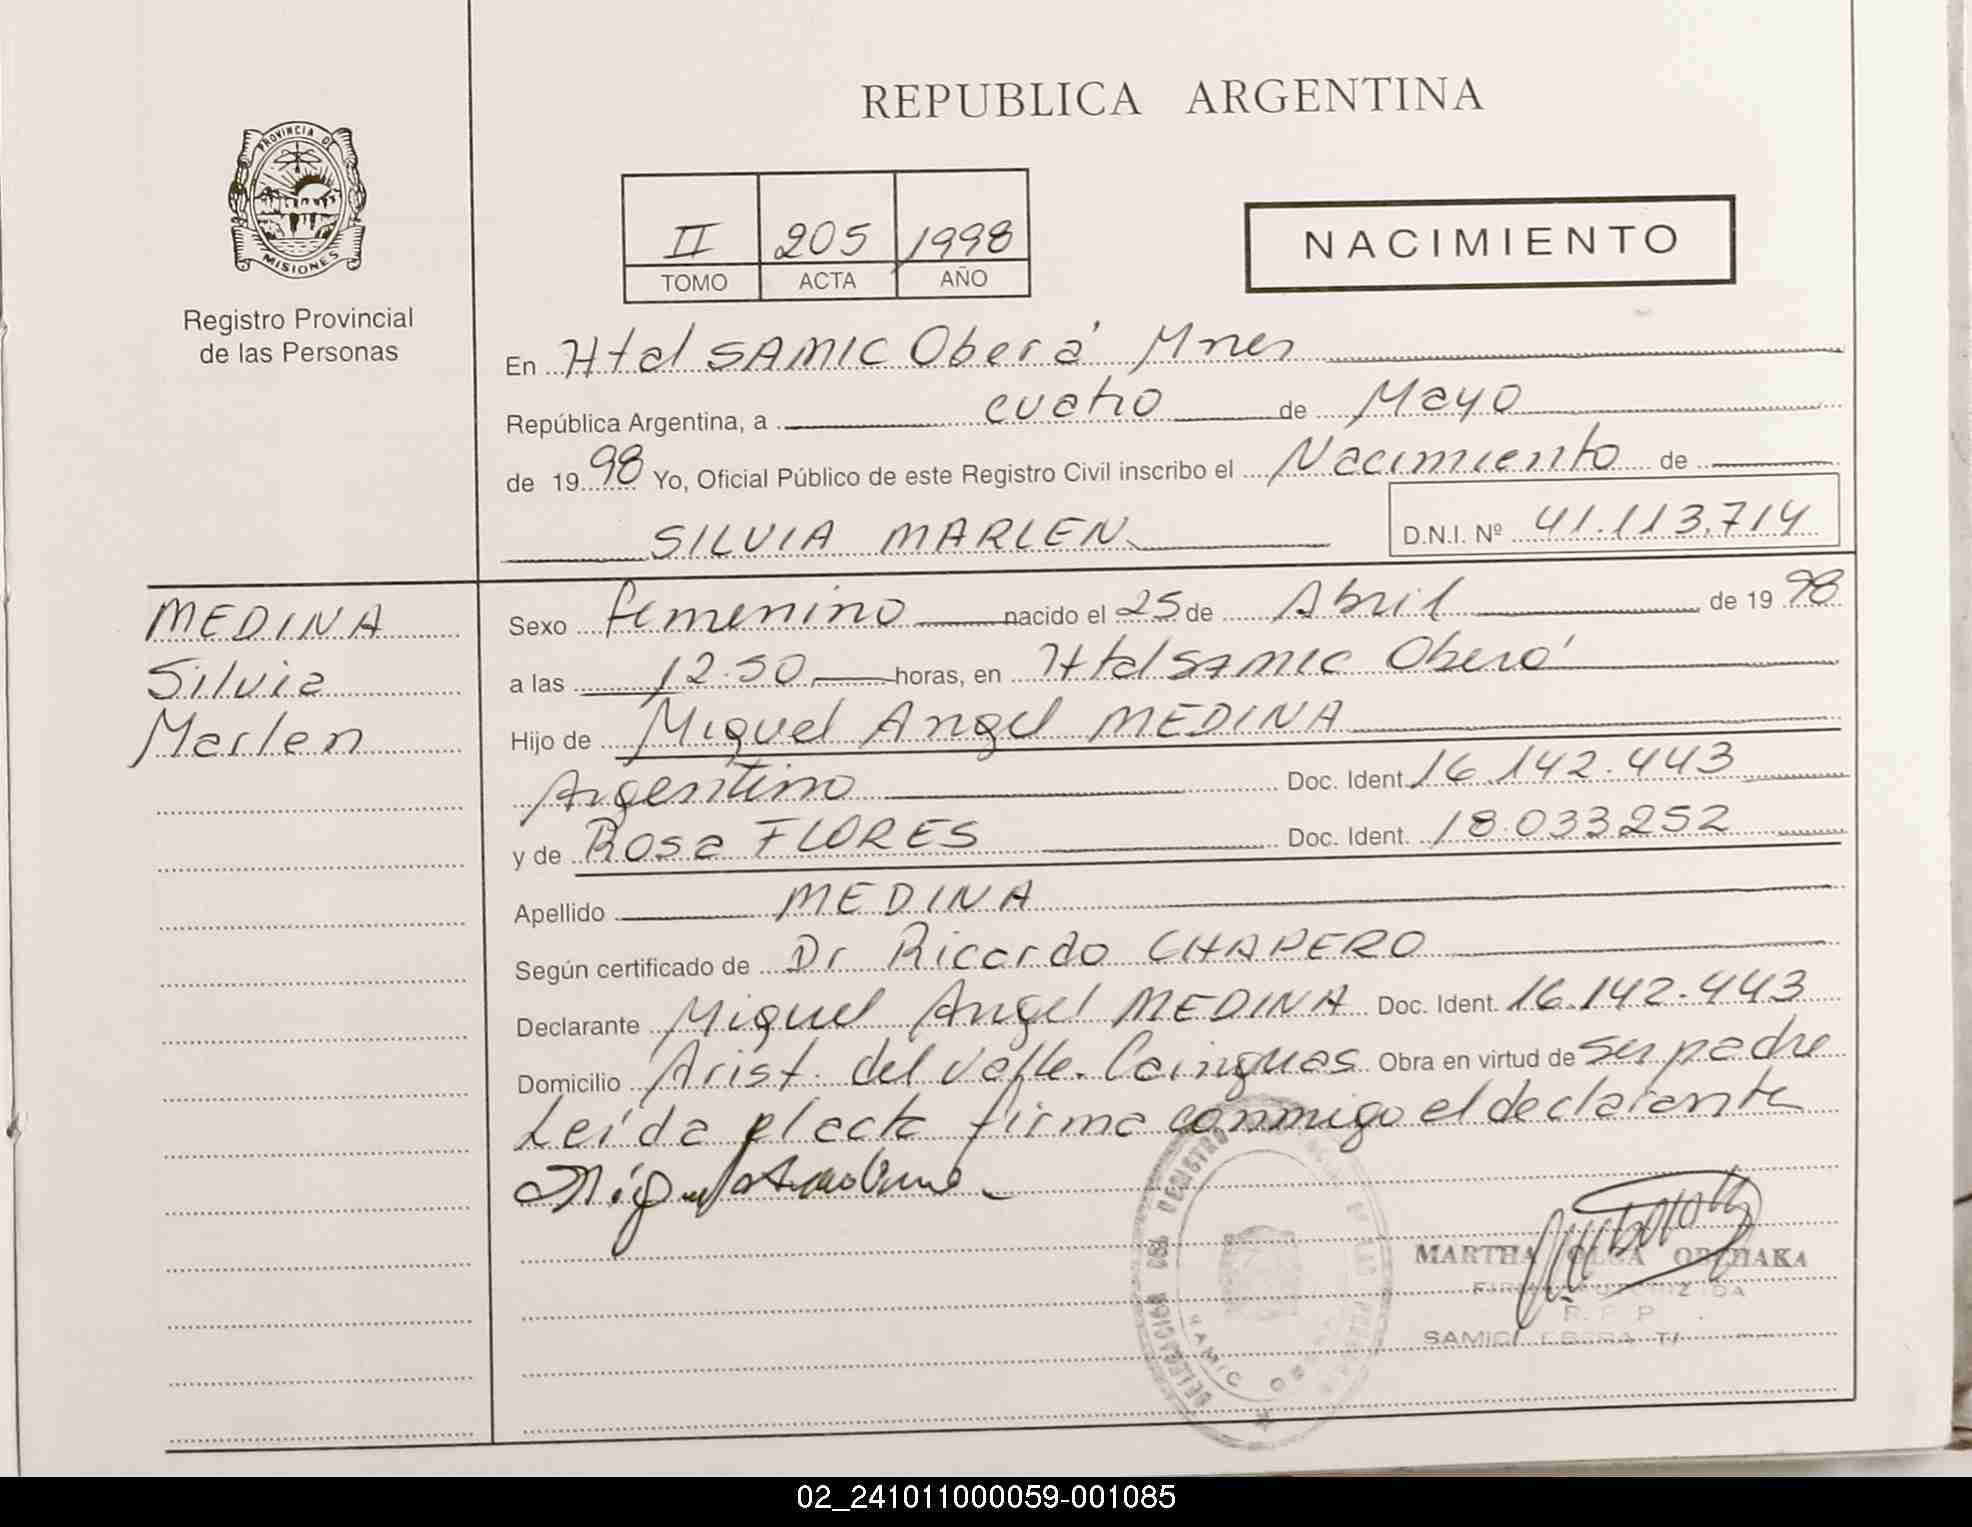 REPUBLICA ARGENTINA
PROVINCIA DE
MISIONES
Registro Provincial
de las Personas
II 205 1998
TOMO ACTA AÑO
NACIMIENTO
En Htal SAMIC Oberá Mnes
República Argentina, a cuatro de Mayo
de 1998 Yo, Oficial Público de este Registro Civil inscribo el Nacimiento de
SILVIA MARLEN
D.N.I. Nº 41.113.714
MEDINA
Silvia
Marlen
Sexo femenino nacido el 25 de Abril de 1998
a las 12.50 horas, en Htal SAMIC Oberá
Hijo de Miguel Angel MEDINA
Argentino Doc. Ident. 16.142.443
y de Rosa FLORES Doc. Ident. 18.033.252
Apellido MEDINA
Según certificado de Dr Ricardo CHAPERO
Declarante Miguel Angel MEDINA Doc. Ident. 16.142.443
Domicilio Arist. del Valle. Cainguas Obra en virtud de ser padre
Leída el acta firma conmigo el declarante
DELEGACION DEL REGISTRO DE LAS
SAMIC OBERA
MARTHA OLGA
R. P. P.
SAMIC OBERA
02_241011000059-001085